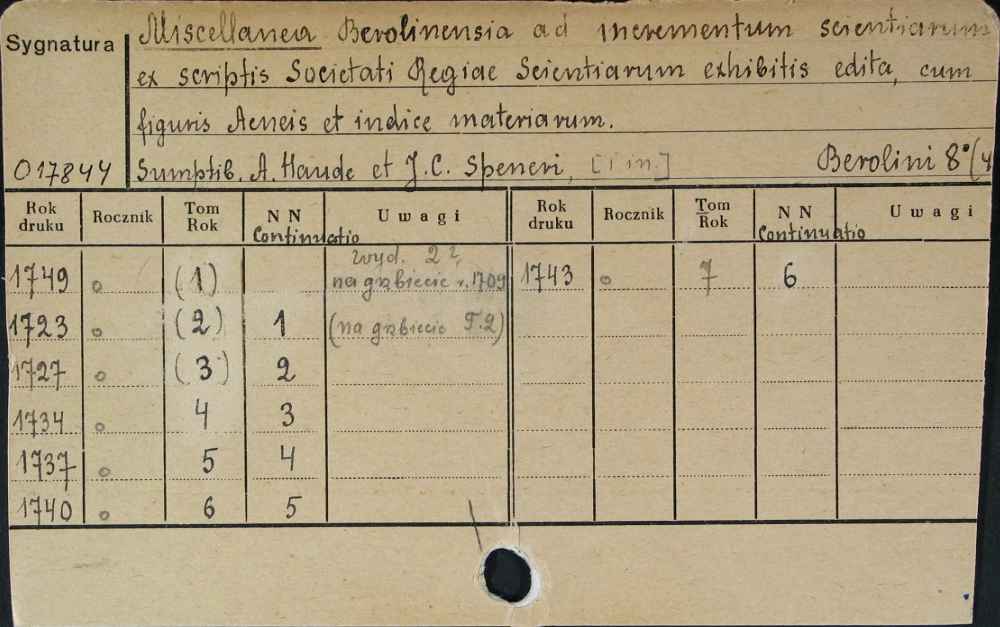 Sygnatura
Miscellanea Berolinensia ad incrementum scientiarum
ex scriptis Societati Regiae Scientiarum exhibitis edita, cum
figuris Aeneis et indice materiarum.
017844 Sumptib. A. Haude et J.C. Speneri, [i in.] Berolini 8°(4
Rok druku Rocznik Tom Rok NN Uwagi Rok druku Rocznik Tom Rok NN Uwagi
Continuatio Continuatio
wyd. 2?,
1749 o (1) na grzbiecie r. 1709 1743 o 7 6
1723 o (2) 1 (na grzbiecie T.2)
1727 o (3) 2
1734 o 4 3
1737 o 5 4
1740 o 6 5